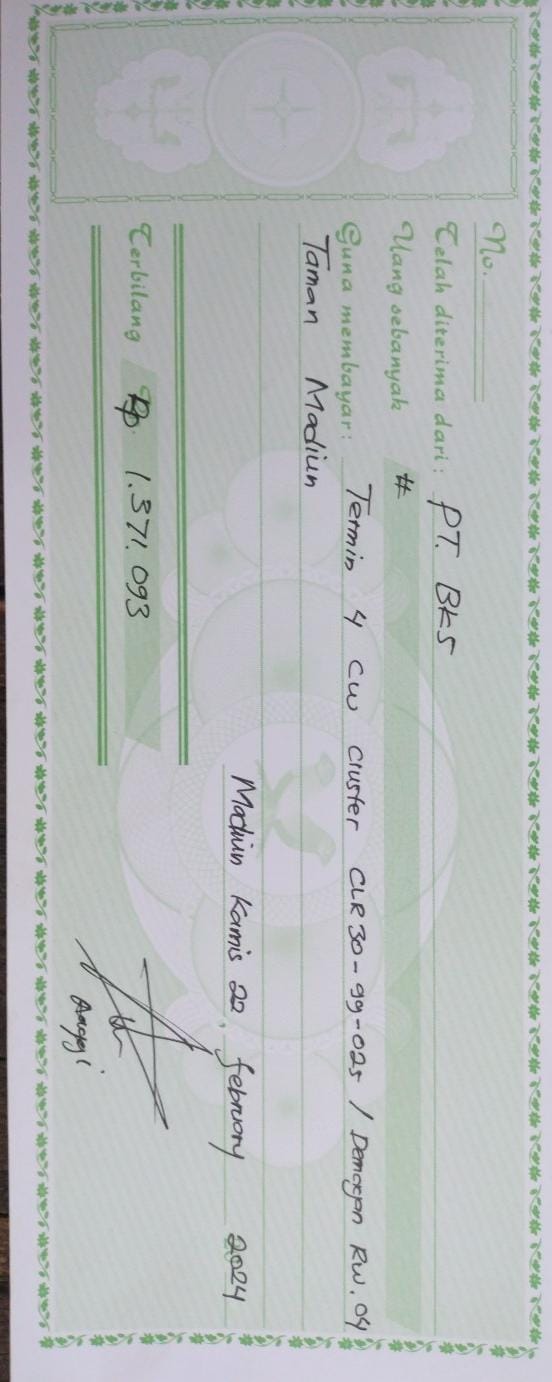 No.
Telah diterima dari : PT. BKS
Uang sebanyak #
Guna membayar: Termin 4 CW Cluster CLR 30-99-025 / Demangan RW. 04
Taman Madiun
Madiun Kamis 22, february 2024
Terbilang Rp 1.371.093
Anggi